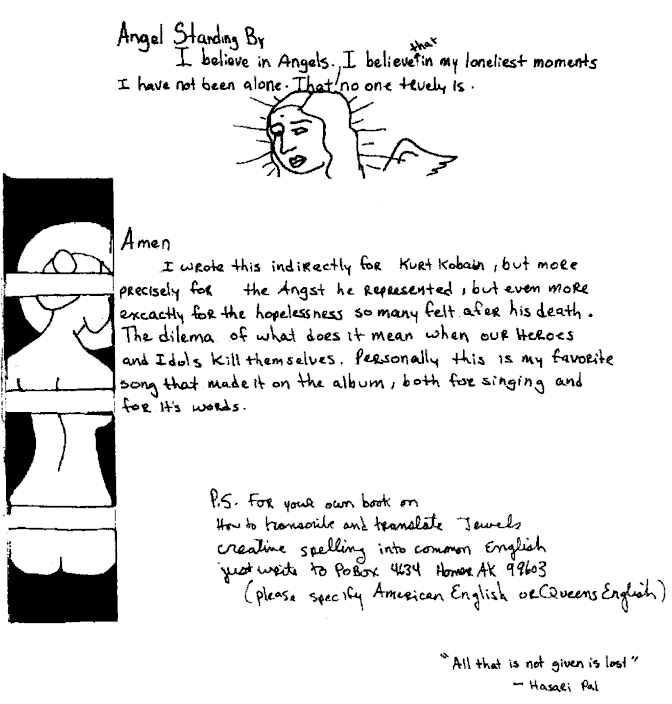 Angel Standing By
I believe in Angels. I believe that in my loneliest moments
I have not been alone. That no one truely is.
Amen
I wrote this indirectly for Kurt Kobain, but more
precisely for the Angst he represented, but even more
excactly for the hopelessness so many felt afer his death.
The dilema of what does it mean when our Heroes
and Idols kill themselves. Personally this is my favorite
song that made it on the album, both for singing and
for it's words.
P.S. For your own book on
How to transcribe and translate Jewels
creative spelling into common English
just write to PO Box 4634 Homer AK 99603
(please specify American English or Queens English)
"All that is not given is lost"
- Hasari Pal